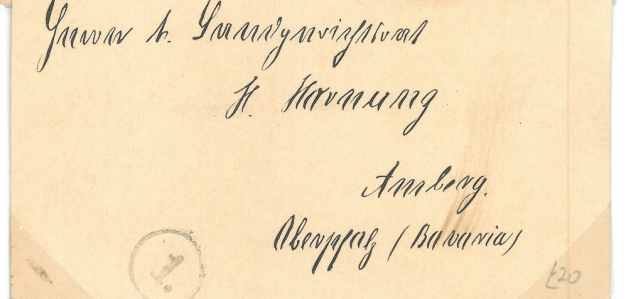 Herrn k. Landgerichtsrat
H. Hornung
Amberg.
Oberpfalz (Bavaria)
1.
£20